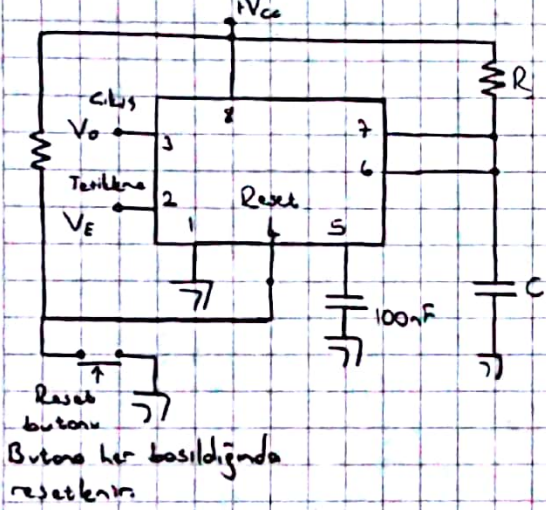 +Vcc
R
Çıkış
8
Vo
3
7
6
Tetikleme
2
Reset
VE
1
4
5
C
100nF
Reset
butonu
Butona her basıldığında
resetlenir.